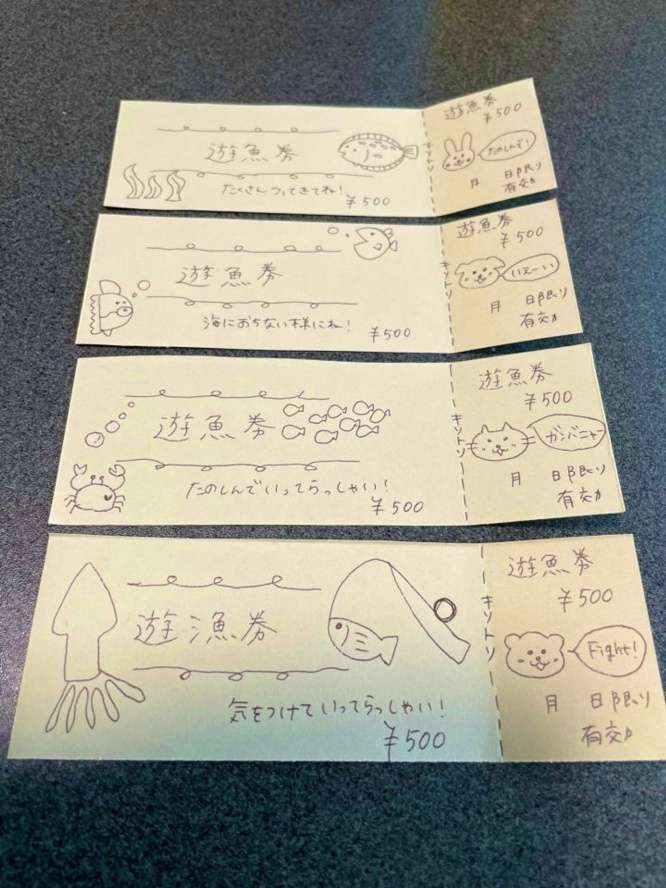 遊魚券
たくさんつってきてね!
¥500
キリトリ
遊魚券
¥500
たのしんで!
月 日限り
有効
遊魚券
海におちない様にね!
¥500
キリトリ
遊魚券
¥500
いえーい
月 日限り
有効
遊魚券
たのしんでいってらっしゃい!
¥500
キリトリ
遊魚券
¥500
ガンバニャー
月 日限り
有効
遊漁券
気をつけていってらっしゃい!
¥500
キリトリ
遊魚券
¥500
Fight!
月 日限り
有効